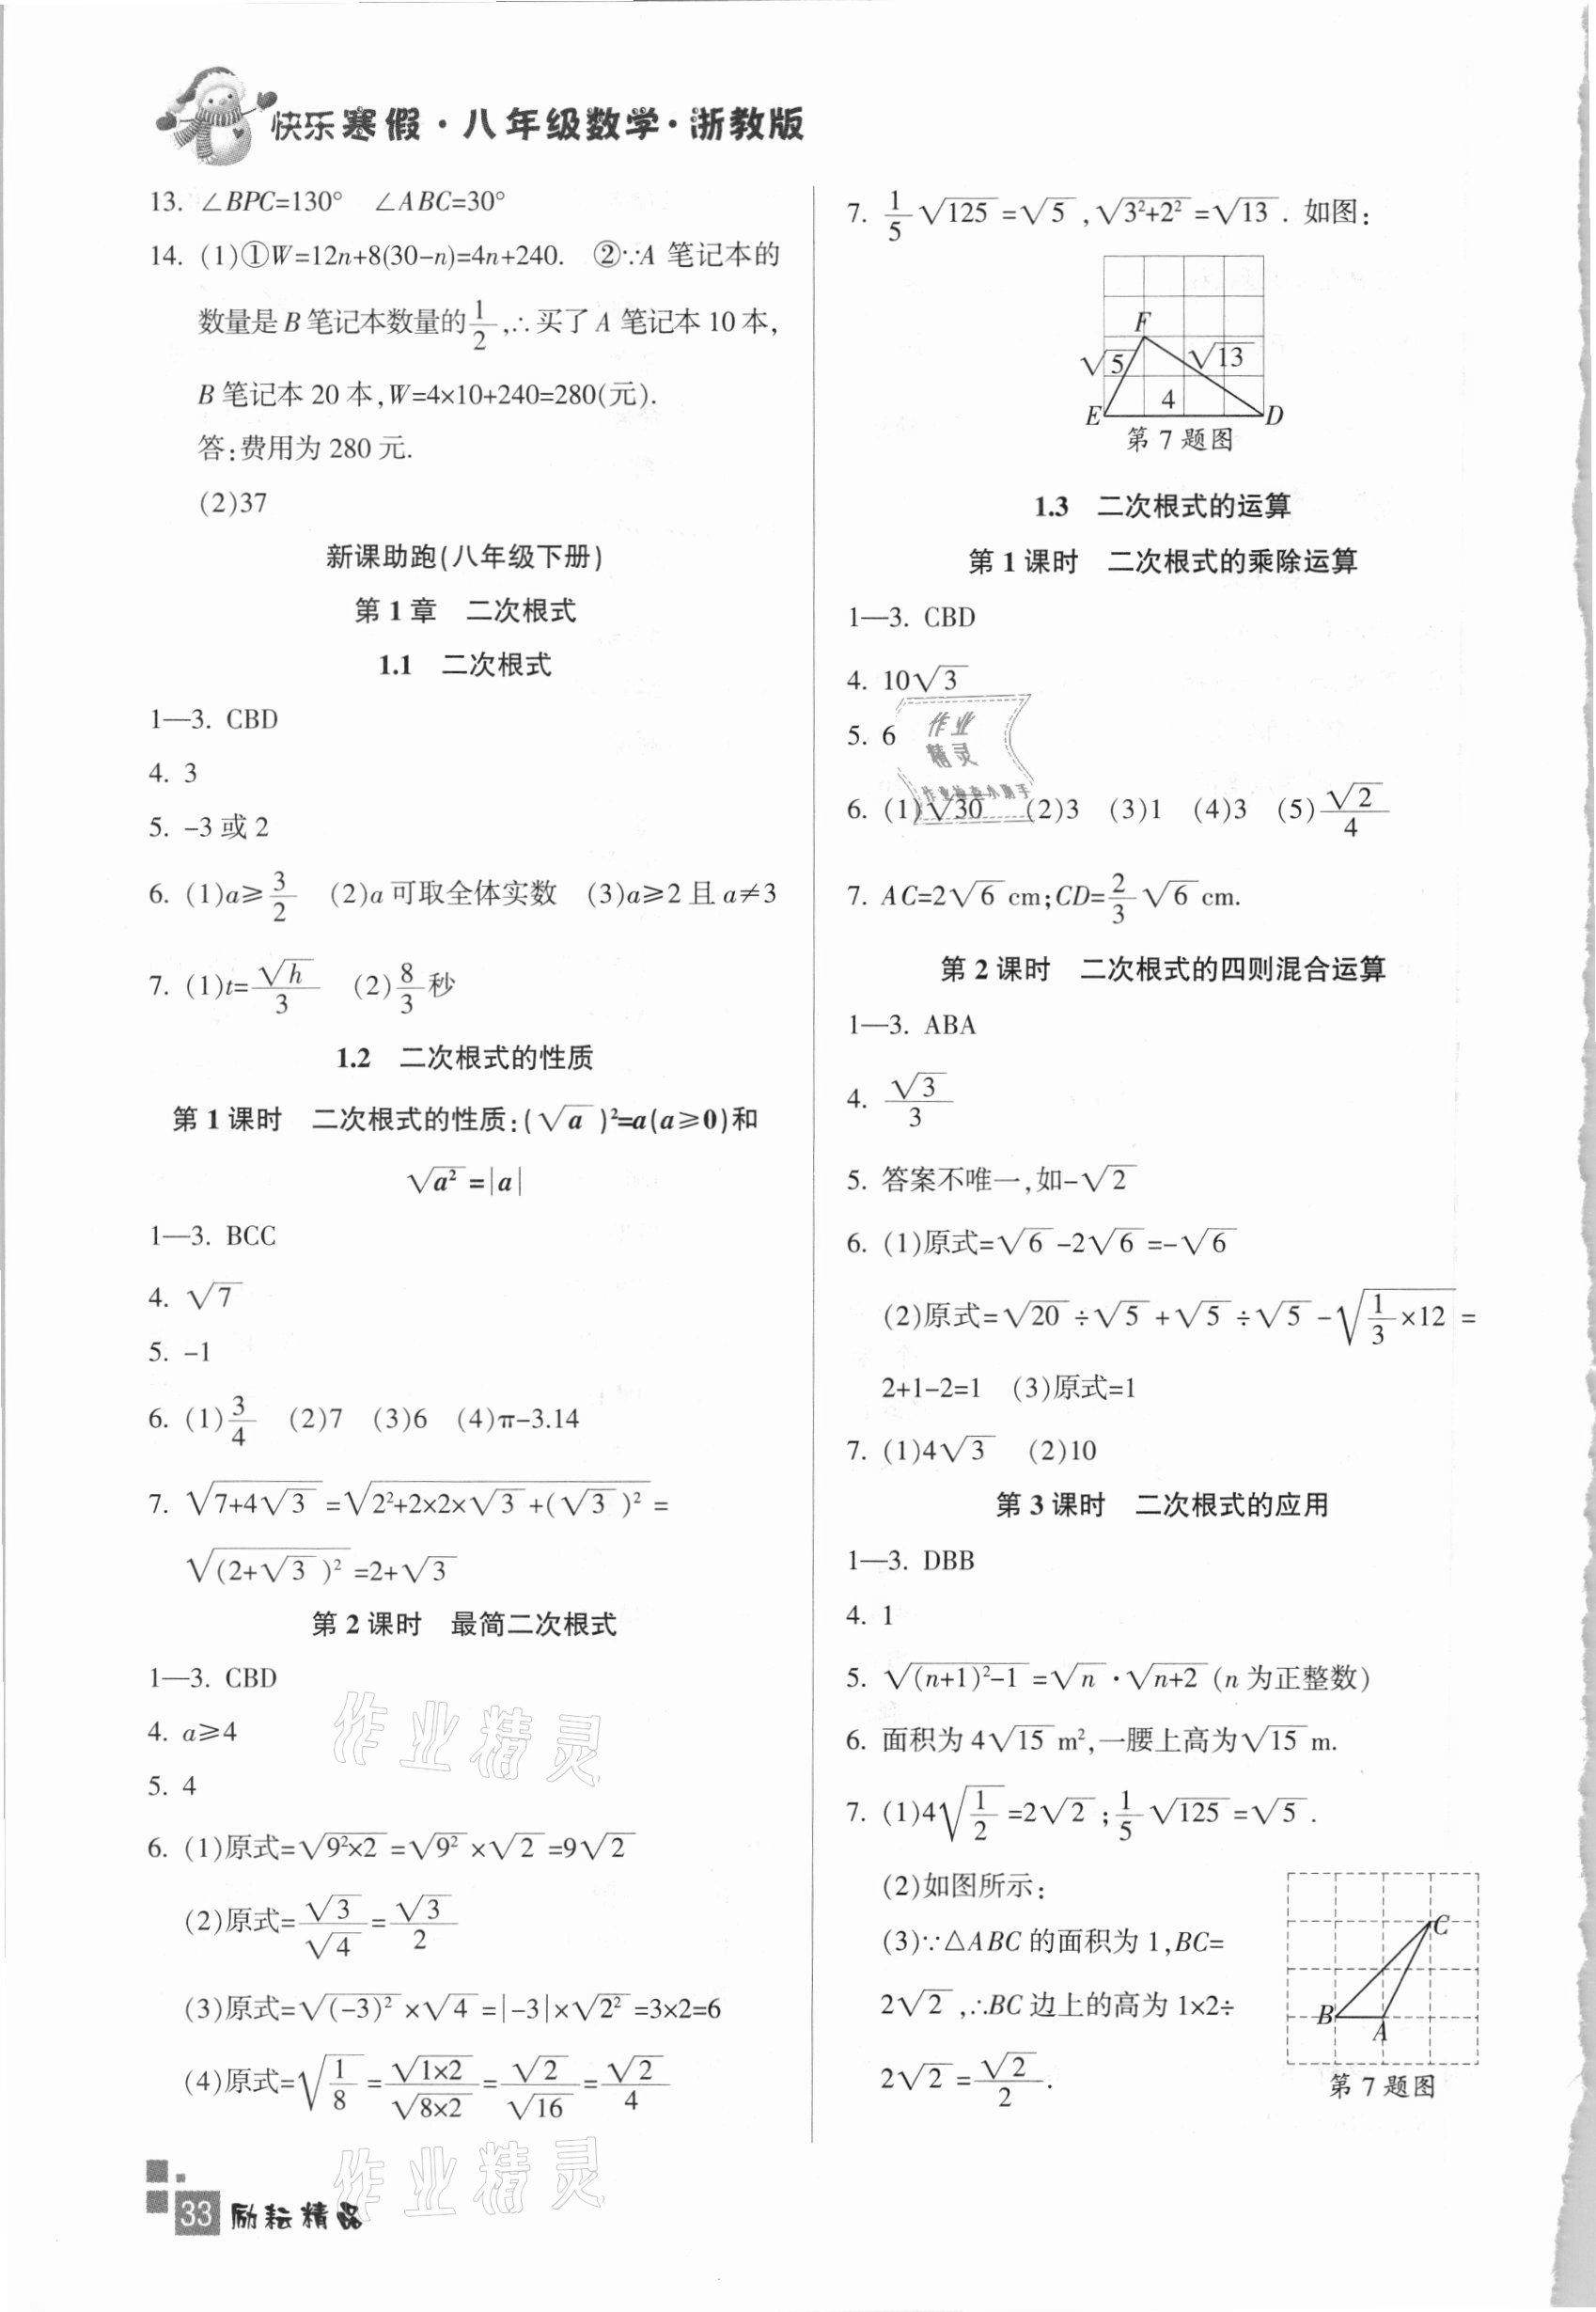 快乐寒假·八年级数学·浙教版
13. ∠BPC=130° ∠ABC=30°
14. (1)①W=12n+8(30-n)=4n+240. ②∵A 笔记本的
数量是B笔记本数量的1/2,∴买了A 笔记本10本,
B笔记本20本,W=4×10+240=280(元).
答:费用为280元.
(2)37
新课助跑(八年级下册)
第1章 二次根式
1.1 二次根式
1—3. CBD
4. 3
5. -3或2
6. (1)a≥3/2 (2)a可取全体实数 (3)a≥2且a≠3
7. (1)t=√h/3 (2)8/3秒
1.2 二次根式的性质
第1课时 二次根式的性质:(√a)²=a(a≥0)和
√a²=|a|
1—3. BCC
4. √7
5. -1
6. (1)3/4 (2)7 (3)6 (4)π-3.14
7. √(7+4√3)=√(2²+2×2×√3+(√3)²)=
√((2+√3)²)=2+√3
第2课时 最简二次根式
1—3. CBD
4. a≥4
5. 4
6. (1)原式=√(9²×2)=√9²×√2=9√2
(2)原式=√3/√4=√3/2
(3)原式=√(-3)²×√4=|-3|×√2²=3×2=6
(4)原式=√(1/8)=√(1×2)/√(8×2)=√2/√16=√2/4
7. 1/5√125=√5,√(3²+2²)=√13. 如图:
F
√5
√13
4
E
D
第7题图
1.3 二次根式的运算
第1课时 二次根式的乘除运算
1—3. CBD
4. 10√3
5. 6
6. (1)√30 (2)3 (3)1 (4)3 (5)√2/4
7. AC=2√6cm;CD=2/3√6cm.
第2课时 二次根式的四则混合运算
1—3. ABA
4. √3/3
5. 答案不唯一,如-√2
6. (1)原式=√6-2√6=-√6
(2)原式=√20÷√5+√5÷√5-√(1/3×12)=
2+1-2=1 (3)原式=1
7. (1)4√3 (2)10
第3课时 二次根式的应用
1—3. DBB
4. 1
5. √((n+1)²-1)=√n·√(n+2)(n为正整数)
6. 面积为4√15m²,一腰上高为√15m.
7. (1)4√(1/2)=2√2;1/5√125=√5.
(2)如图所示:
(3)∵△ABC的面积为1,BC=
2√2,∴BC边上的高为1×2÷
2√2=√2/2.
C
B
A
第7题图
作业
精灵
作业检查小助手
作业精灵
作业精灵
33 励耘精品